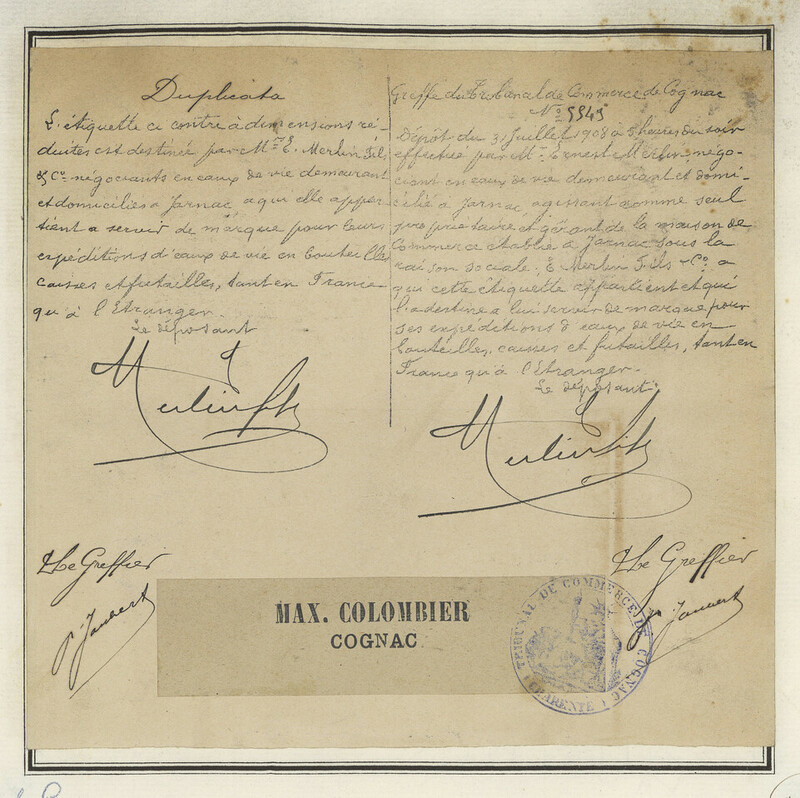 Duplicata
L'étiquette ci contre à dimensions ré-
duites est destinée par Mr E. Merlin Fils
& Co négociants en eaux de vie demeurant
et domiciliés à Jarnac a qui elle appar-
tient a servir de marque pour leurs
expéditions d'eaux de vie en bouteilles
caisses et futailles, tant en France
qu'à l'Étranger.
Le déposant
Merlin Fils
Greffe du Tribunal de Commerce de Cognac
No 5549
Dépôt du 31 Juillet 1908 à 5 heures du soir
effectué par Mr Ernest Merlin négo-
ciant en eaux de vie demeurant et domi-
cilié à Jarnac, agissant comme seul
propriétaire et gérant de la maison de
Commerce établie à Jarnac sous la
raison sociale: E Merlin Fils & Co a
qui cette étiquette appartient et qui
l'a destine a lui servir de marque pour
ses expéditions d'eaux de vie en
bouteilles, caisses et futailles, tant en
France qu'à l'étranger.
Le déposant:
Merlin Fils
Le Greffier
P. Joubert
Le Greffier
P. Joubert
MAX. COLOMBIER
COGNAC
TRIBUNAL DE COMMERCE DE COGNAC
(CHARENTE)